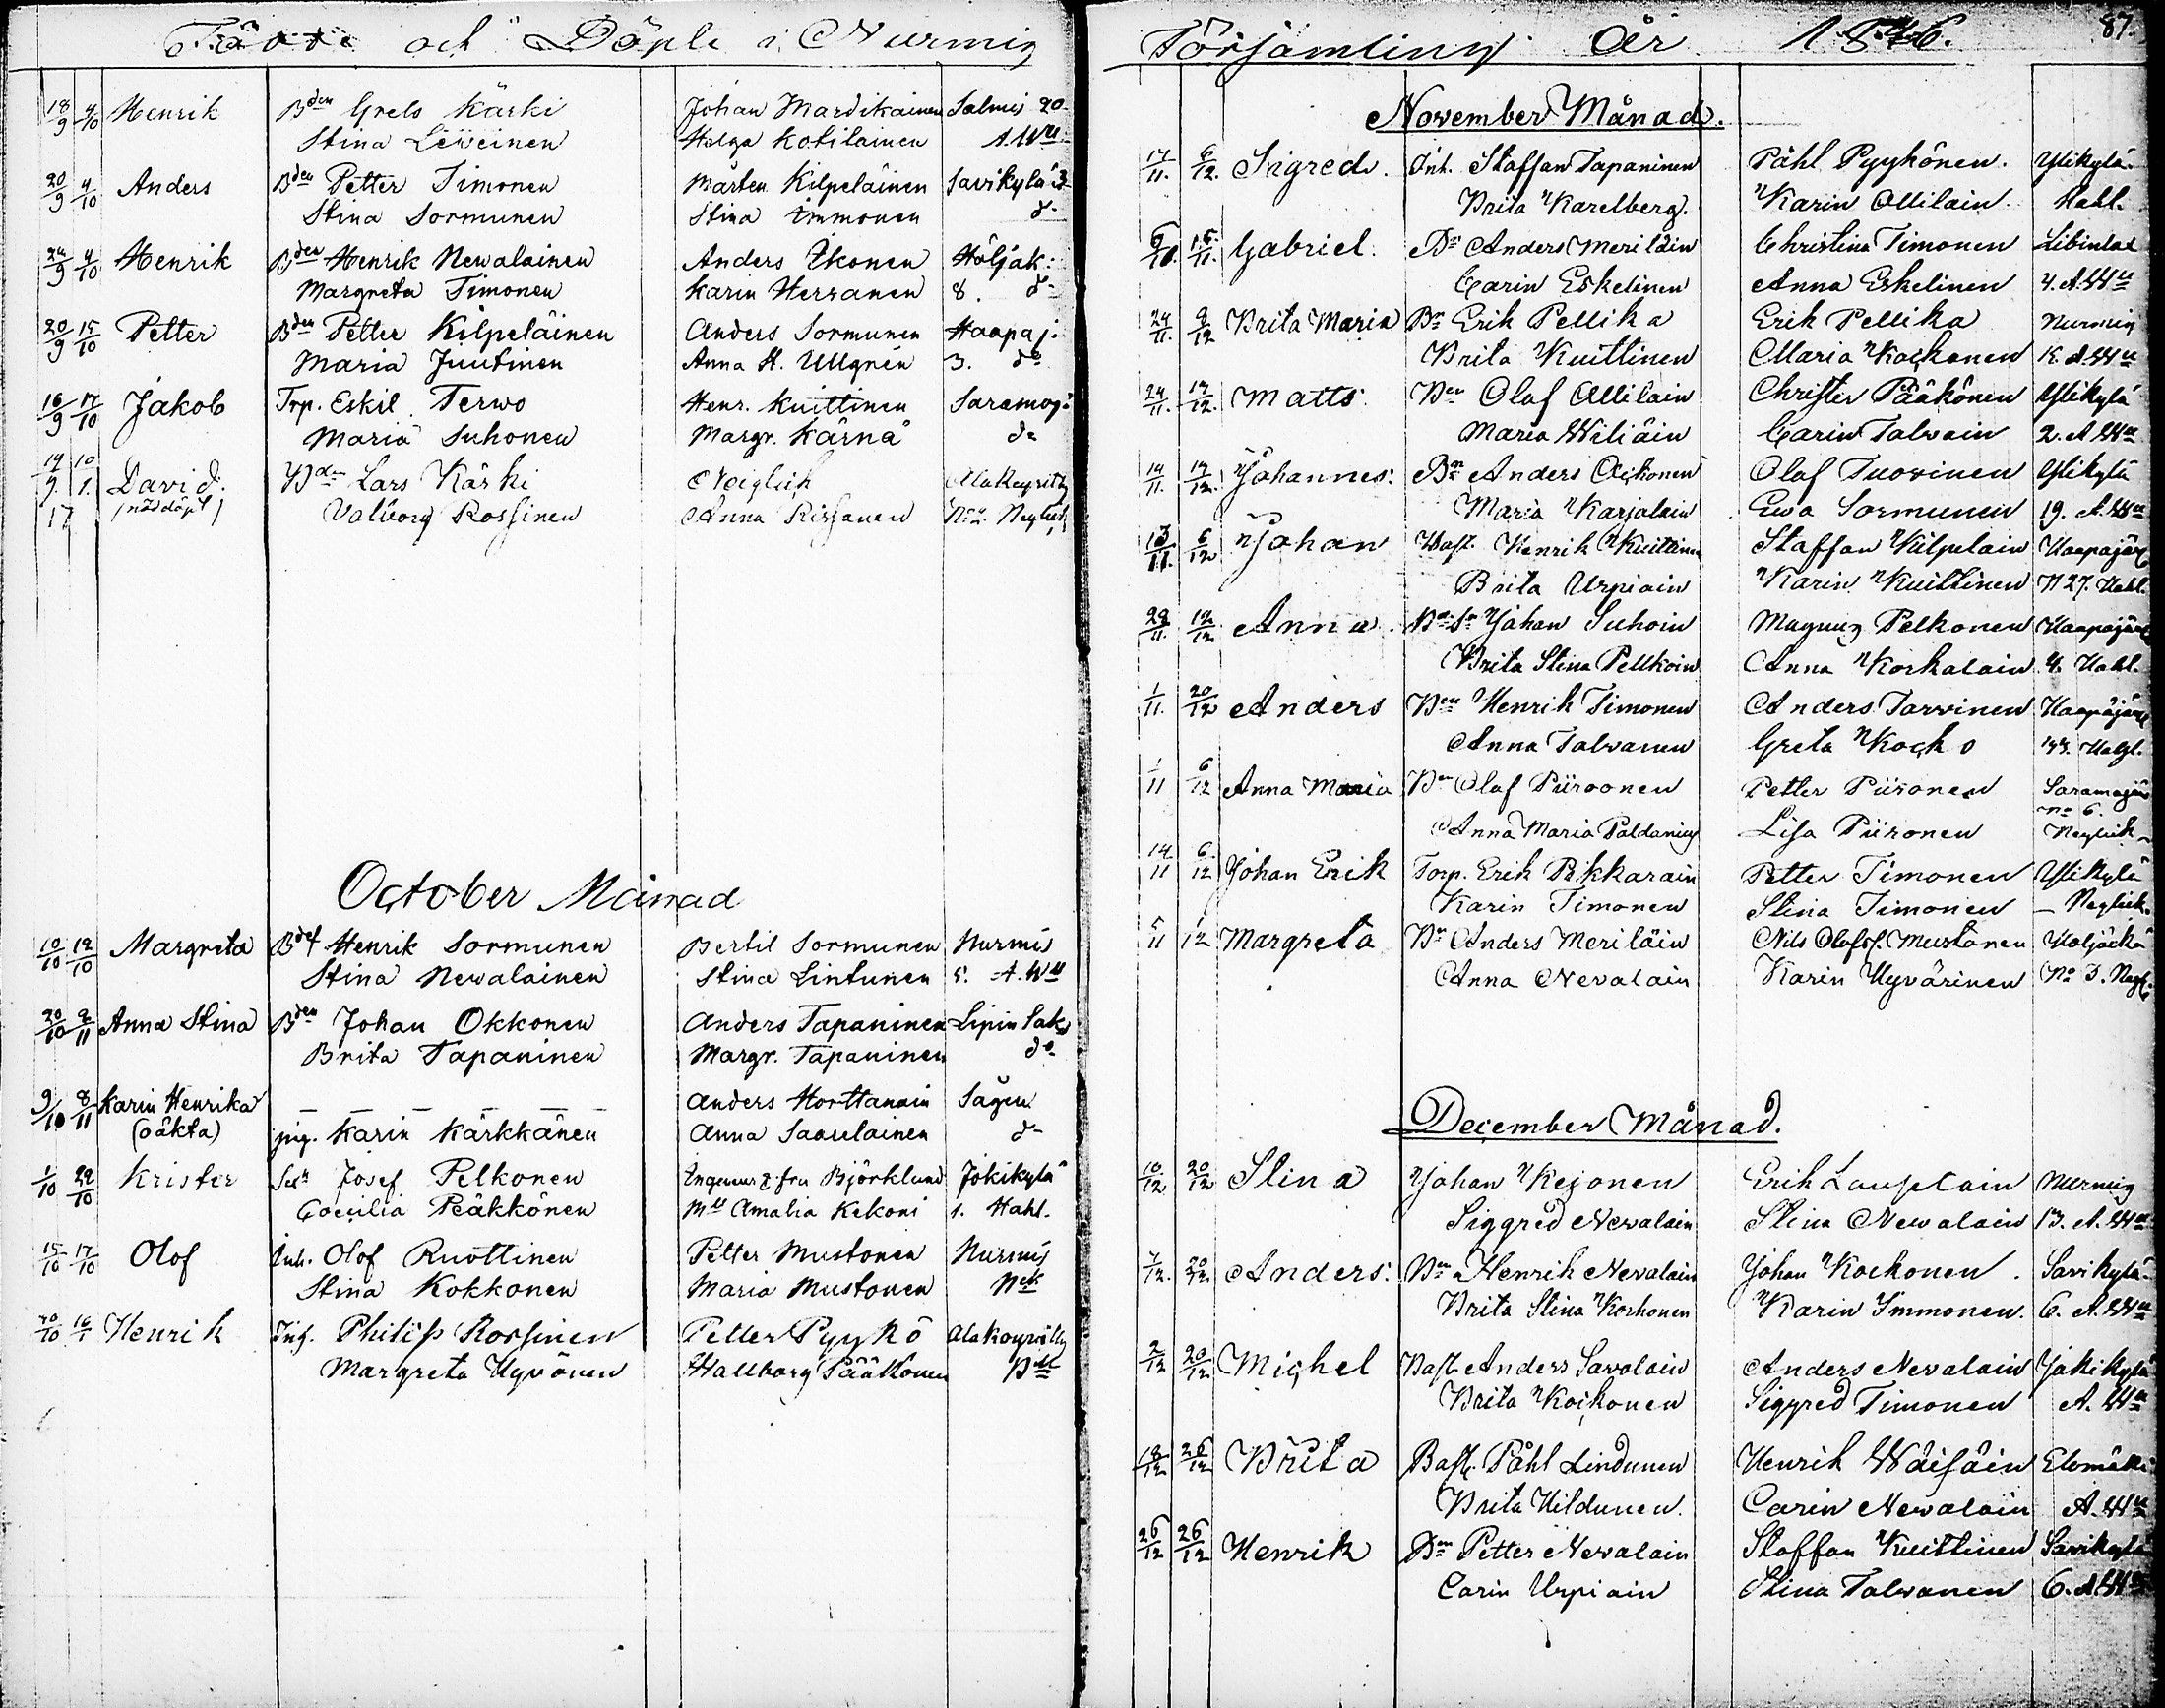 Födde och Döpte i Nurmis
18/9 4/10 Henrik Bden Grels Kärki Johan Mardikainen Salmis 20
Stina Leweinen Helga Kotilainen A.W.
20/9 4/10 Anders Bden Petter Timonen Mårten Kilpeläinen Savikylä 3
Stina Sormunen Stina Immonen do
24/9 4/10 Henrik Bden Henrik Newalainen Anders Ikonen Höljäk:
Margreta Timonen Karin Herranen 8. do
20/9 15/10 Petter Bden Petter Kilpeläinen Anders Sormunen Haapaj.
Maria Juutinen Anna H. Ullgren 3. do
16/9 17/10 Jakob Trp. Eskil Terwo Henr. Kuittinen Saramoj:
Maria Suhonen Margr. Kärnä do
19/9. 10/1. David. Bden Lars Kärki Neiglick Alakeyritty
17 (nöddöpt) Valborg Rossinen Anna Rissanen
October Månad
10/10 12/10 Margreta Henrik Sormunen Bertil Sormunen Nurmis
Stina Newalainen Stina Lintunen 5. A.W
20/10 2/11 Anna Stina Bden Johan Okkonen Anders Tapaninen Lipinlaks
Brita Tapaninen Margr. Tapaninen do
9/10 8/11 Karin Henrika — — — — — Anders Horttanain Sågen
(oäkta) pig. Karin Kärkkänen Anna Saarelainen do
1/10 22/10 Krister Josef Pelkonen Ingenieur & fru Björklund Jokikylä
Coecilia Pääkkönen Mll Amalia Kekoni 1. Hahl.
15/10 17/10 Olof Inh. Olof Ruottinen Petter Mustonen Nurmis
Stina Kokkonen Maria Mustonen Nek
Henrik Philip Rossinen Petter Pyykö Alakoyritty
Margreta Hyvönen Wallborg Pääkönen
Församling År 1846. 87.
November Månad.
17/11. 6/12. Sigred. Inh. Staffan Tapaninen Påhl Pyykönen. Ylikylä
Brita Karelberg. Karin Ollilain. Hahl.
15/11. Gabriel. Bn Anders Meriläin Christina Timonen Libinlax
Carin Eskelinen Anna Eskelinen 4. A.W
24/11. 9/12 Brita Maria Bn Erik Pellika Erik Pellika Nurmis
Brita Kuittinen Maria Kockonen A.W
24/11. 12/12. Matts Ben Olof Ollilain Christer Pääkönen Ylikylä
Maria Wiliäin Carin Talvain 2. A W
14/11. 12/12. Johannes: Bn Anders Ockonen Olof Tuovinen Ylikylä
Maria Karjalain Ewa Sormunen 19. A.W
13/11. 6/12 Johan Hoft. Henrik Kuittinen Staffan Kilpelain Haapajärv
Brita Urpiain Karin Kuittinen N 27. Hahl.
28/11. 12/12 Anna. Bn Sn Johan Suhoin Magnus Pelkonen Haapajärv
Brita Stina Pellkoin Anna Korhalain 4. Hahl.
1/11. 20/12 Anders Ben Henrik Timonen Anders Tarvinen Haapajärv
Anna Talvanen Greta Kocko
1/11 6/12 Anna Maria Bn Olof Piiroonen Petter Piironen Saramojärv
no 6.
Anna Maria Paldanius Lisa Piironen Neglick
14/11 6/12 Johan Erik Torp. Erik Pikkarain Petter Timonen Ylikylä
Karin Timonen Stina Timonen — Neglick.
5/11 12 Margreta Bn Anders Meriläin Nils Olofsf. Mustonen Höljäckä
Anna Nevalain Karin Hyvärinen No 3. Negl.
December Månad.
10/12 20/12 Stina Johan Kejonen Erik Nurmis
Siggred Nevalain Stina Newalain 13. A. W
7/12. 20/12. Anders: Bn Henrik Nevalain Johan Kockonen. Savikylä
Brita Stina Korhonen Karin Immonen. 6. A. W
2/12 20/12 Michel Baft. Anders Savolain Anders Nevalain Jokikylä
Brita Kockonen Siggred Timonen A. W
18/12 26/12 Brita Baft. Påhl Lindunen Henrik Wäisäin Elomäki
Brita Hildunen. Carin Newalain A. W
26/12 26/12 Henrik Bn Petter Nevalain Staffan Kuittinen Savikylä
Carin Urpiain Stina Talvanen 6. A.W